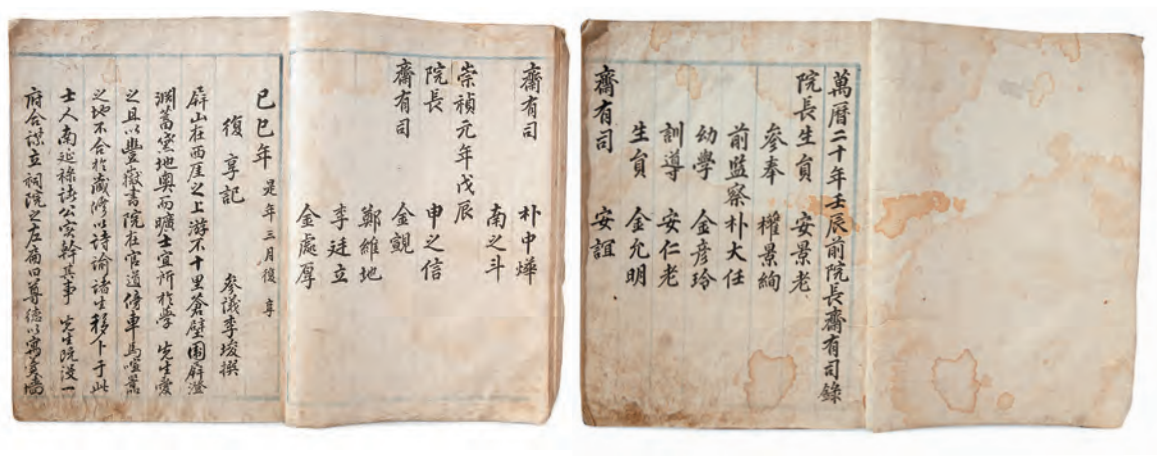 萬曆二十年壬辰前院長齋有司錄
院長生員 安景老
參奉 權景絢
前監察朴大任
幼學 金彦玲
訓導 安仁老
生員 金允明
齋有司 安誼
齋有司 朴中燁
南之斗
崇禎元年戊辰
院長 申之信
齋有司 金鯢
鄭維地
李廷立
金處厚
己巳年 是年三月復享
復享記 參議李埈撰
屛山在西厓之上游不十里蒼壁圍屛澄
澗蓄黛地奧而曠士宜所於學 先生愛
之且以豐嶽書院在官道傍車馬喧囂
之地不合於藏修以詩諭諸生移卜于此
士人南延祿諸公實幹其事 先生旣沒一
府合謀立祠院之左扁曰尊德以寓羹墻